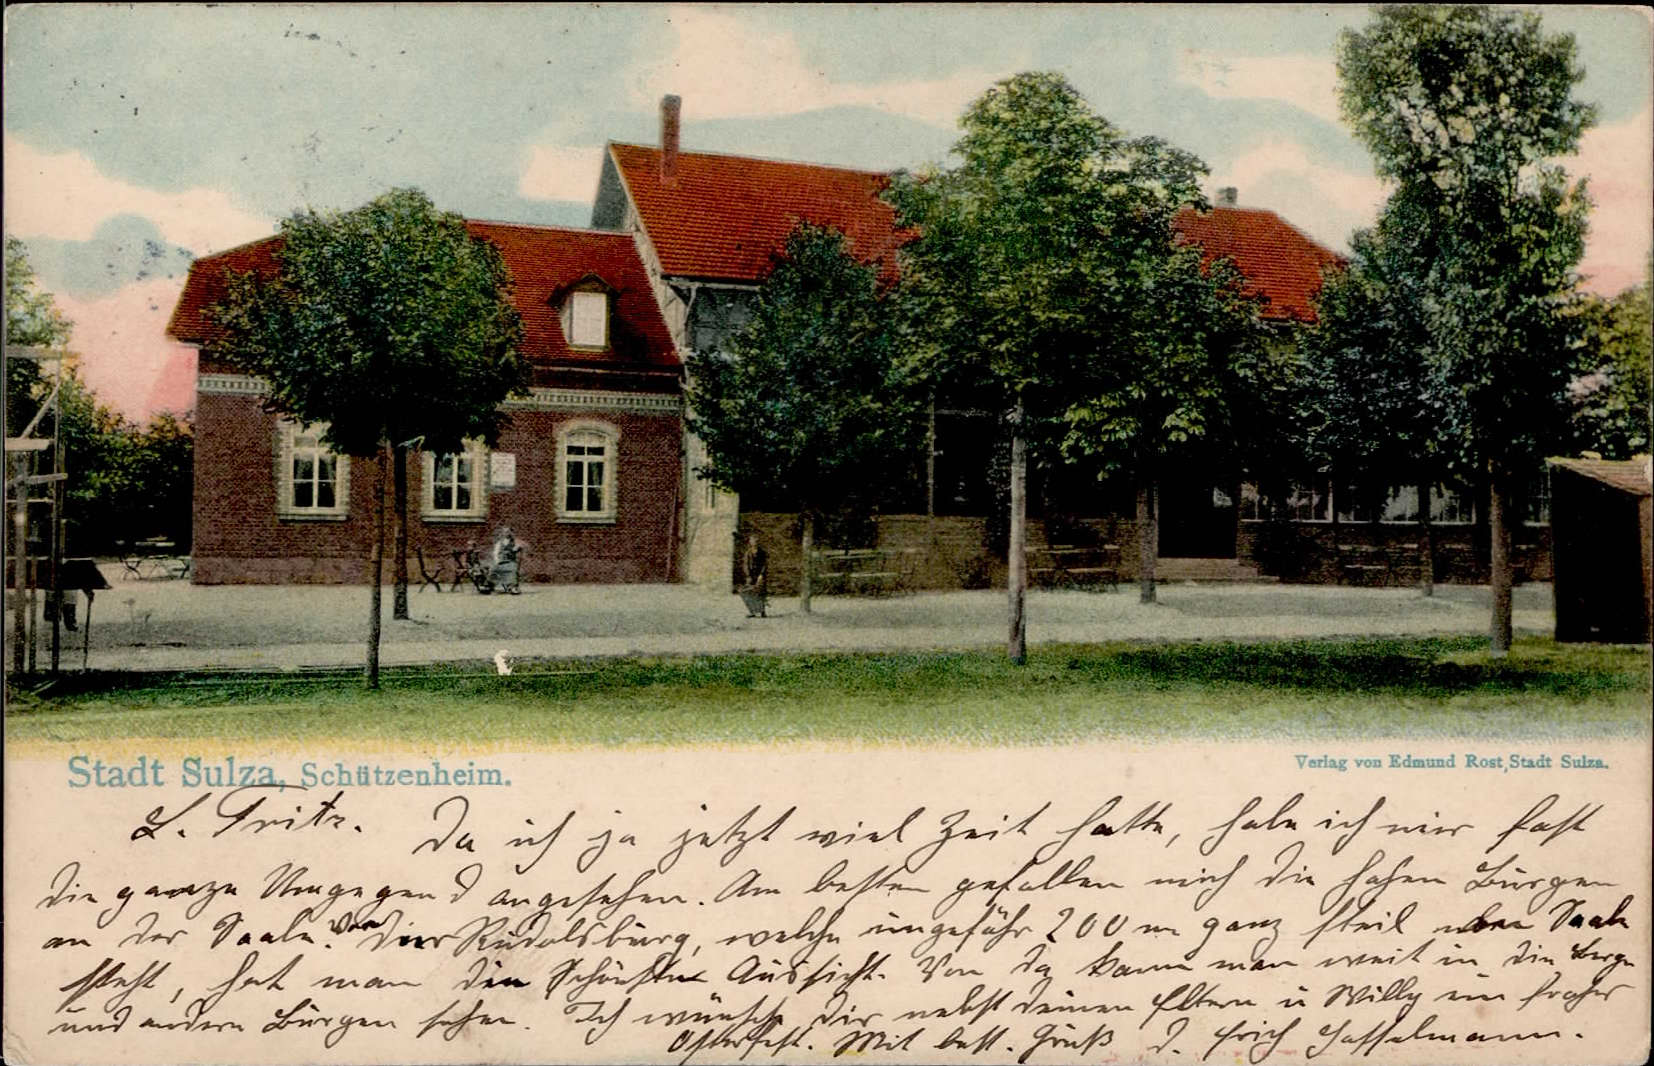 Stadt Sulza, Schützenheim.
Verlag von Edmund Rost, Stadt Sulza.
L. Fritz. Da ich ja jetzt viel Zeit hatte, habe ich mir fast
die ganze Umgegend angesehen. Am besten gefallen mich die hohen Burgen
an der Saale. Von der Rudolsburg, welche ungefähr 200 m ganz steil über Saale
steht, hat man die schönste Aussicht. Von da kann man weit in die Berge
und andere Burgen sehen. Ich wünsche dir nebst deinen Eltern u Willy ein frohes
Osterfest. Mit best. Gruß D. Erich Hasselmann.